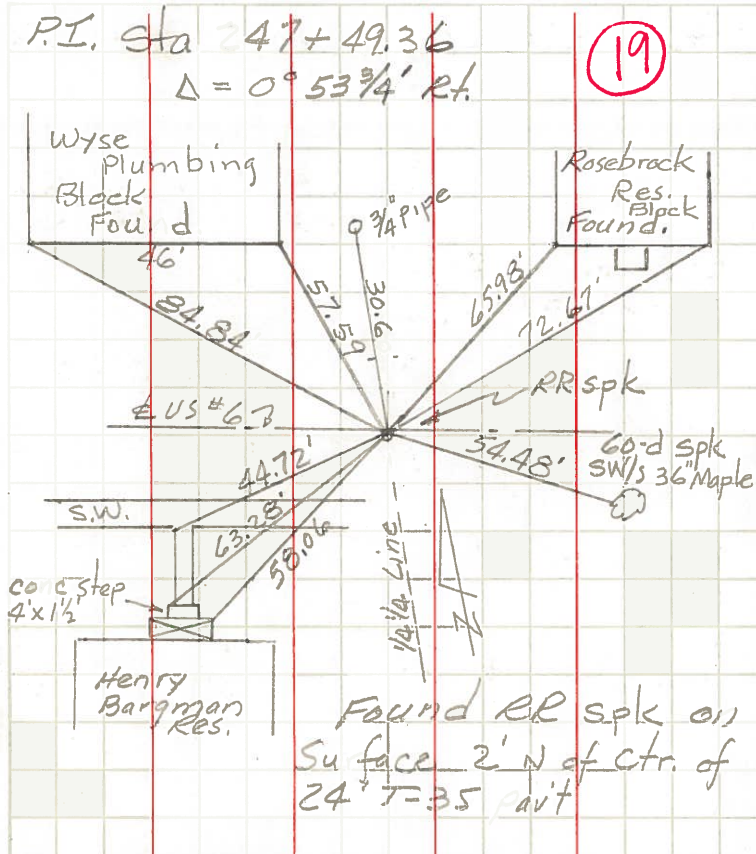 P.I. Sta 47+49.36
19
Δ = 0° 53 3/4' Rt.
Wyse
Plumbing
Block
Found
46'
3/4" Pipe
Rosebrock
Res.
Block
Found.
84.84
57.59'
30.6'
65.98'
72.67'
RR spk
℄ US #6
54.48'
60-d spk
SW/s 36" Maple
44.72'
S.W.
63.28'
58.06
1/4 1/4 Line
N
conc step
4'x1½'
Henry
Bargman
Res.
Found RR spk on
Surface 2' N of Ctr. of
24' T-35 pav't